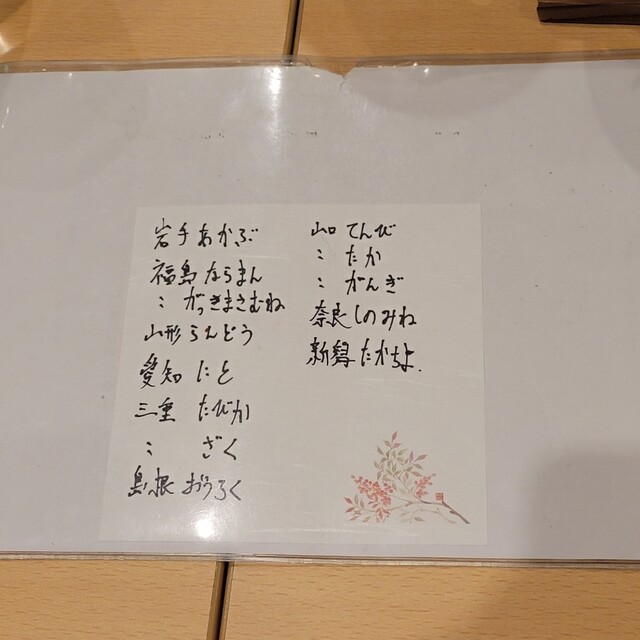 岩手 あかぶ
福島 ならまん
〃 がっきまさむね
山形 らんどう
愛知 にと
三重 たびか
〃 ざく
島根 おうろく
山口 てんび
〃 たか
〃 がんぎ
奈良 しのみね
新潟 たかちよ.